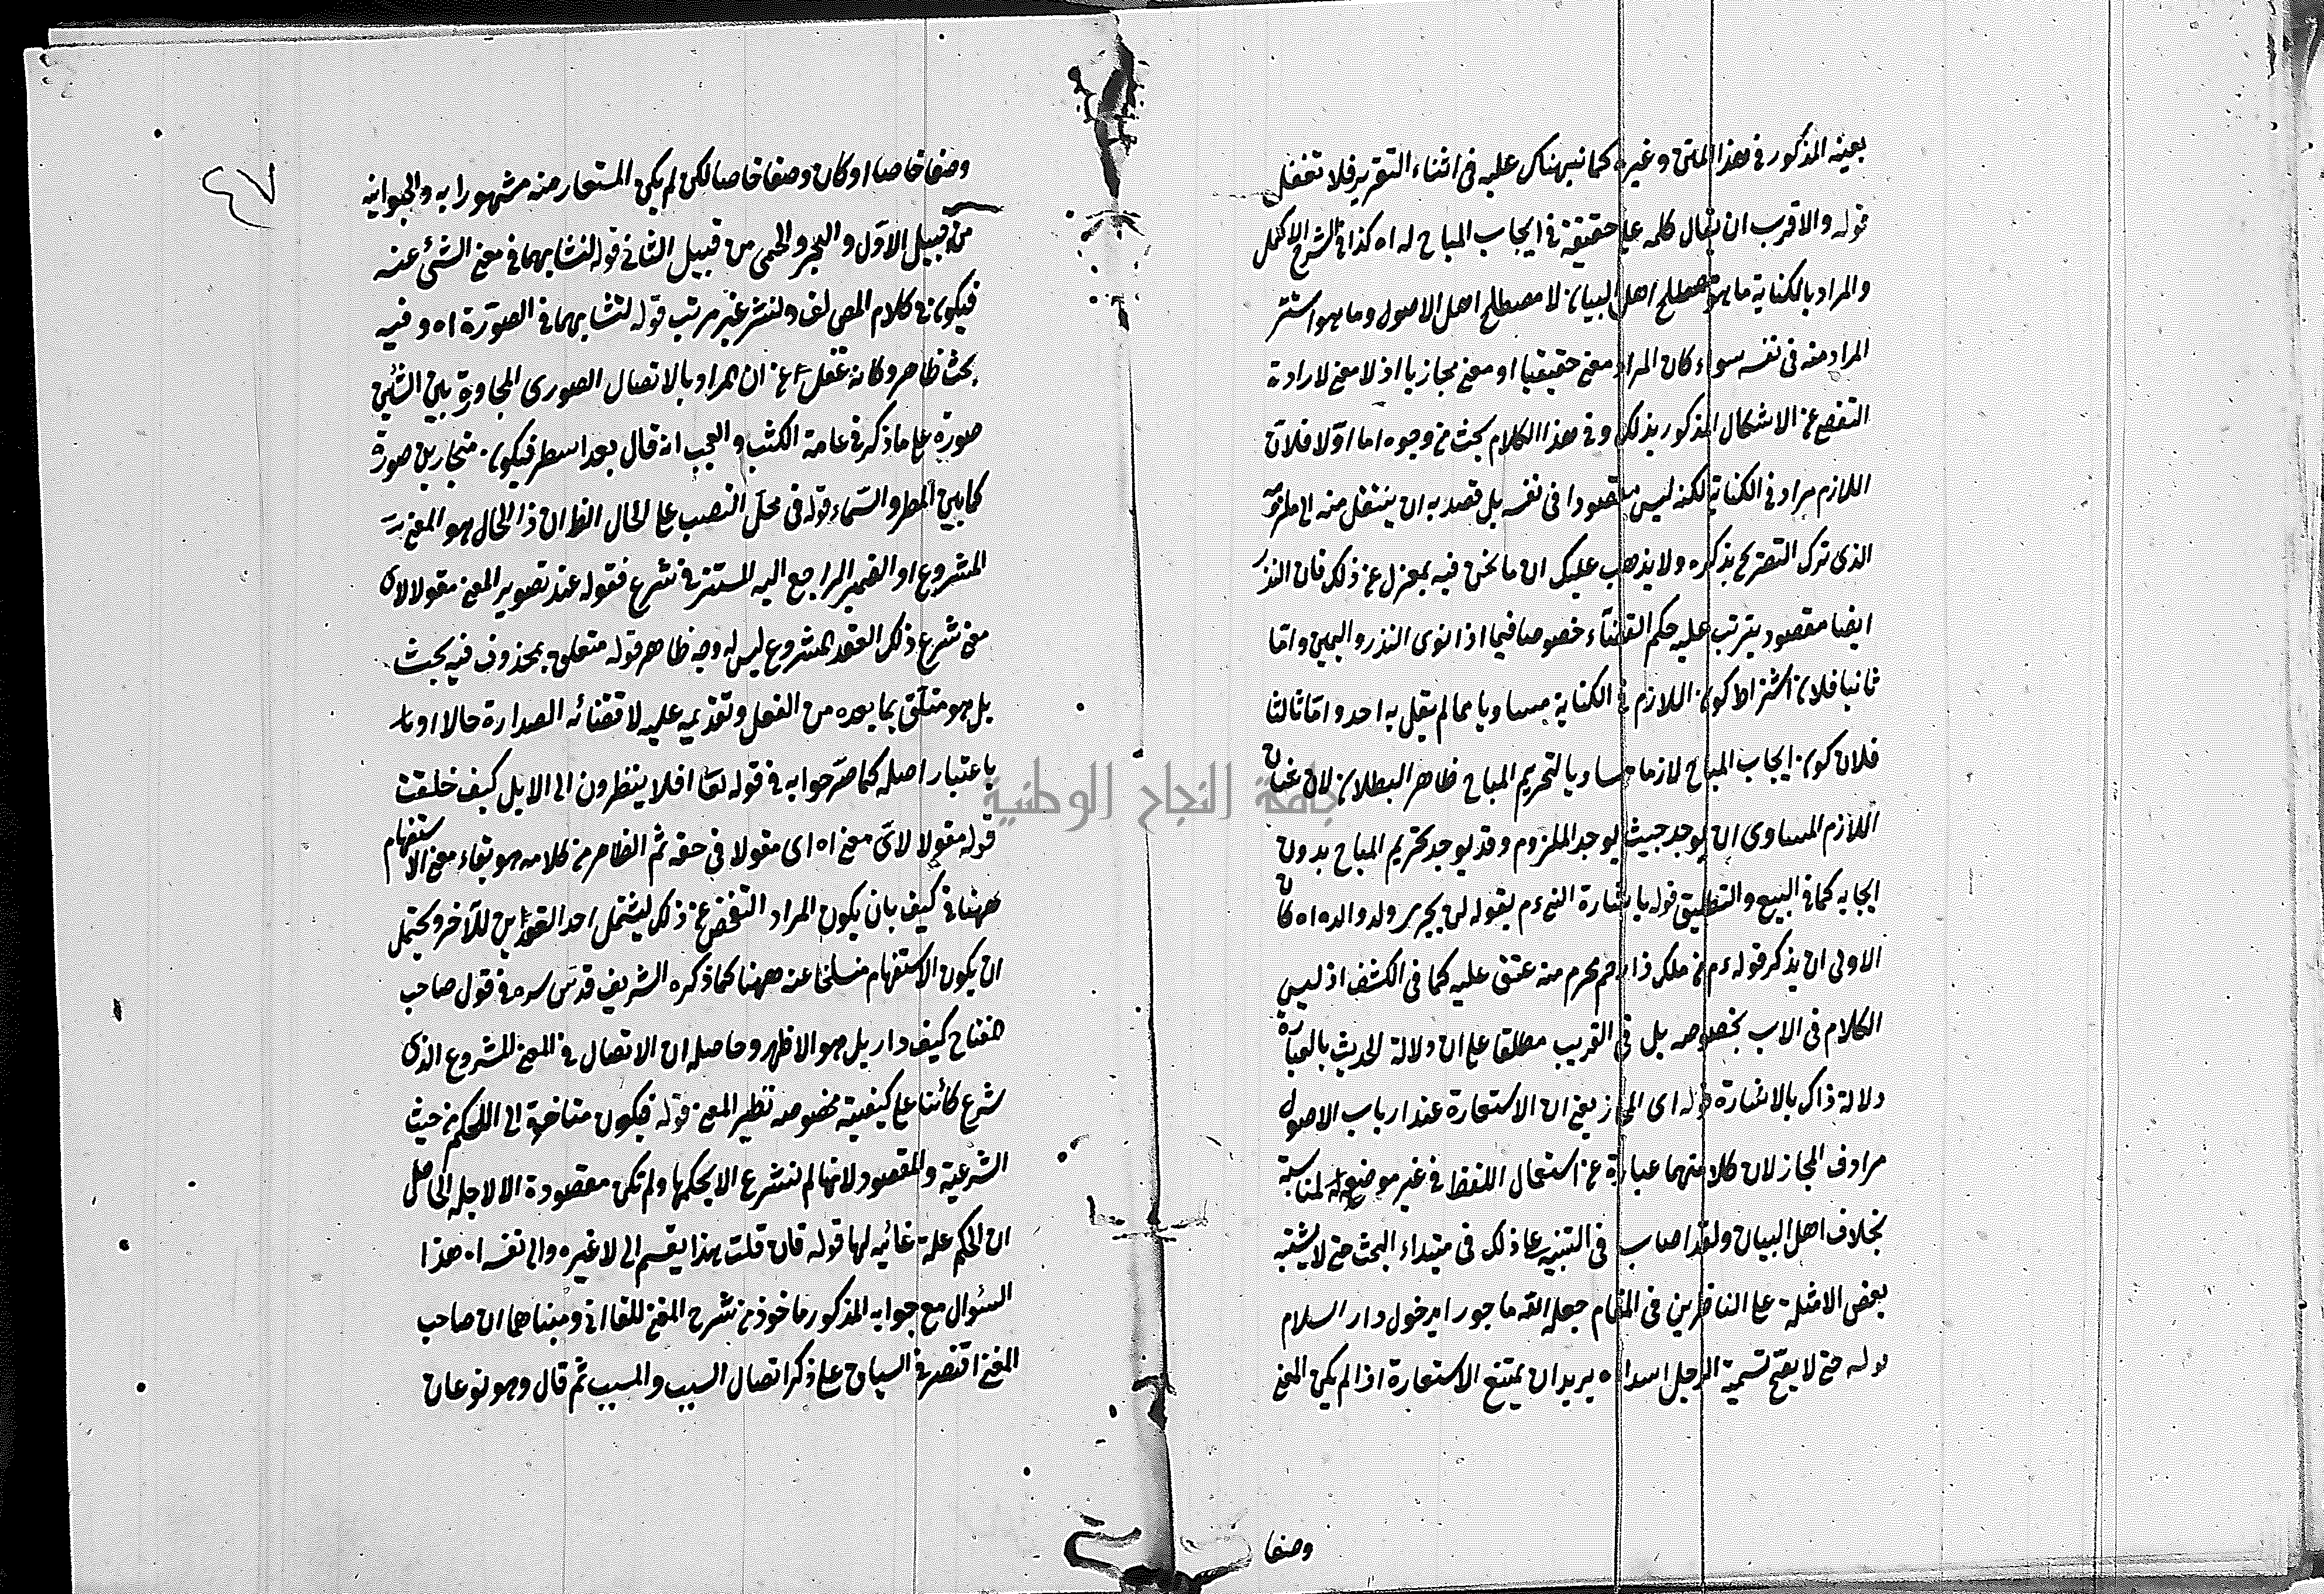 بعينه المذكور في هذا المتن وغيره كما نبهناك عليه في اثناء التقرير فلا تغفل
قوله والاقرب ان يقال كلمه علي حقيقة في ايجاب المباح له اه كذا في الشرح الاكمل
والمراد بالكناية ما هو مصطلح اهل البيان لا مصطلح اهل الاصول وما هو استتر
المراد منه في نفسه سواء كان المراد معني حقيقيا او معني مجازيا اذ لا معني لارادة
التفصي عن الاشكال المذكور بذلك وفي هذا الكلام بحث من وجوه اما اولا فلان
اللازم مراد في الكناية لكنه ليس مقصودا في نفسه بل قصد به ان ينتقل منه الى ملزومه
الذي ترك التصريح بذكره ولا يذهب عليك ان ما نحن فيه بمعزل عن ذلك فان النذر
ايضا مقصود يترتب عليه حكم القضاء خصوصا فيما اذا نوى النذر واليمين واما
ثانيا فلان اشتراط كون اللازم في الكناية مساويا مما لم يقل به احد واما ثالثا
فلان كون ايجاب المباح لازما مساويا لتحريم المباح ظاهر البطلان لان
اللازم المساوى ان يوجد حيث يوجد الملزوم وقد يوجد تحريم المباح بدون
ايجابه كما في البيع والتطليق قوله باشارة النبي عم بقوله لن يجزى ولد والده اه كان
الاولى ان يذكر قوله عم من ملك ذا رحم محرم منه عتق عليه كما في الكشف اذ ليس
الكلام في الاب بخصوصه بل في القريب مطلقا على ان دلالة الحديث بالعبارة
دلالة ذاك بالاشارة قوله اى المجاز يعني ان الاستعارة عند ارباب الاصول
مرادف المجاز لان كلا منهما عبارة عن استعمال اللفظ في غير موضعه لمناسبة
بخلاف اهل البيان ولقد اصاب في التنبيه على ذلك في مبتداء البحث حتى لا يشتبه
بعض الامثلة على الناظرين في المقام جعله الله ماجورا بدخول دار السلام
قوله حتى لا يصح تسمية الرجل اسدا اه يريد ان يمتنع الاستعارة اذا لم يكن المعني
وصفا
٤٧
وصفا خاصا او كان وصفا خاصا لكن لم يكن المستعار منه مشهورا به والحيوانية
من قبيل الاول والبخر والحمى من قبيل الثاني قوله لتشابههما في معني الشئ عنه
فيكون في كلام المص لف ونشر غير مرتب قوله لتشابههما في الصورة اه وفيه
بحث ظاهر وكانه غفل عن ان المراد بالاتصال الصورى المجاورة بين الشئين
صورة على ما ذكر في عامة الكتب والعجب انه قال بعد اسطر فيكون متجاورين صورة
كما بين المطر والسماء قوله في محل النصب على الحال الظ ان ذا الحال هو المعني
المشروع او الضمير الراجع اليه المستتر في شرع فقوله عند تصوير المعني مقولا لاى
معني شرع ذلك العقد المشروع ليس له وجه ظاهر قوله متعلق بمحذوف فيه بحث
بل هو متعلق بما بعده من الفعل وتقديمه عليه لاقتضائه الصدارة حالا او
باعتبار اصله كما صرحوا به في قوله تعا افلا ينظرون الى الابل كيف خلقت
قوله مقولا لاى معني اه اى مقولا في حقه ثم الظاهر من كلامه هو بقاء معني الاستفهام
ههنا في كيف بان يكون المراد التفحص عن ذلك ليشتمل احد العقدين للآخر ويحتمل
ان يكون الاستفهام منسلخا عنه ههنا كما ذكره الشريف قدس سره في قول صاحب
المفتاح كيف دار بل هو الاظهر وحاصله ان الاتصال في المعني المشروع الذى
شرع كائنا على كيفية مخصوصه نظير المعني قوله فيكون متاخرة الى الحكم من حيث
الشرعية والمقصود لانها لم تشرع الا لحكمها ولم تكن مقصودة الا لاجله الحاصل
ان الحكم علة غائيه لها قوله فان قلت هذا يقسم الى لا غيره والى نفسه اه هذا
السئوال مع جوابه المذكور ماخوذ من شرح المغني للقاانى ومبناهما ان صاحب
المغني اقتصر في السياق على ذكر اتصال السبب والمسبب ثم قال وهو نوعان